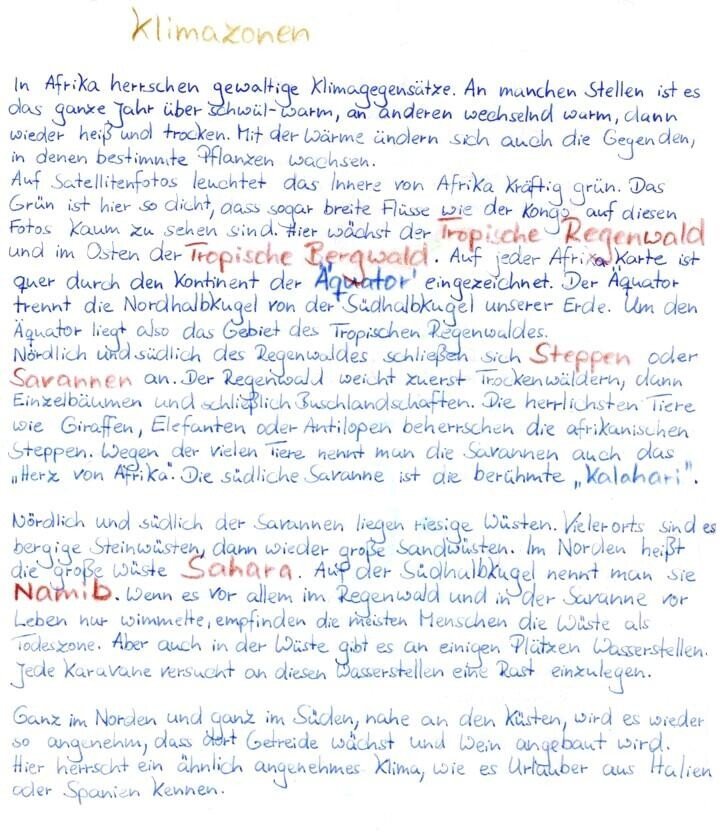 Klimazonen
In Afrika herrschen gewaltige Klimagegensätze. An manchen Stellen ist es
das ganze Jahr über schwül-warm, an anderen wechselnd warm, dann
wieder heiß und trocken. Mit der Wärme ändern sich auch die Gegenden,
in denen bestimmte Pflanzen wachsen.
Auf Satellitenfotos leuchtet das Innere von Afrika kräftig grün. Das
Grün ist hier so dicht, dass sogar breite Flüsse wie der Kongo auf diesen
Fotos kaum zu sehen sind. Hier wächst der Tropische Regenwald
und im Osten der Tropische Bergwald. Auf jeder Afrika Karte ist
quer durch den Kontinent der "Äquator" eingezeichnet. Der Äquator
trennt die Nordhalbkugel von der Südhalbkugel unserer Erde. Um den
Äquator liegt also das Gebiet des Tropischen Regenwaldes.
Nördlich und südlich des Regenwaldes schließen sich Steppen oder
Savannen an. Der Regenwald weicht zuerst Trockenwäldern, dann
Einzelbäumen und schließlich Buschlandschaften. Die herrlichsten Tiere
wie Giraffen, Elefanten oder Antilopen beherrschen die afrikanischen
Steppen. Wegen der vielen Tiere nennt man die Savannen auch das
„Herz von Afrika". Die südliche Savanne ist die berühmte „Kalahari".
Nördlich und südlich der Savannen liegen riesige Wüsten. Vielerorts sind es
bergige Steinwüsten, dann wieder große Sandwüsten. Im Norden heißt
die große Wüste Sahara. Auf der Südhalbkugel nennt man sie
Namib. Wenn es vor allem im Regenwald und in der Savanne vor
Leben nur wimmelte, empfinden die meisten Menschen die Wüste als
Todeszone. Aber auch in der Wüste gibt es an einigen Plätzen Wasserstellen.
Jede Karavane versucht an diesen Wasserstellen eine Rast einzulegen.
Ganz im Norden und ganz im Süden, nahe an den Küsten, wird es wieder
so angenehm, dass dort Getreide wächst und Wein angebaut wird.
Hier herrscht ein ähnlich angenehmes Klima, wie es Urlauber aus Italien
oder Spanien kennen.